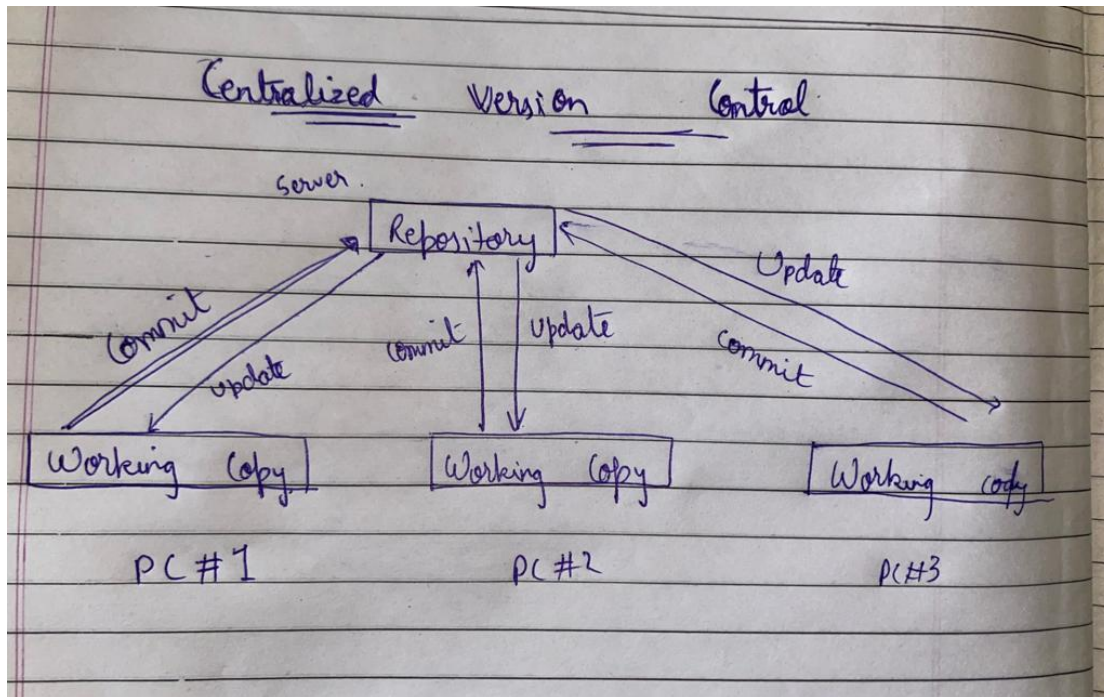 Centralized Version Control
Server.
Repository
Update
Commit
update
commit
update
commit
Working Copy
Working Copy
Working cody
PC #1
PC #2
PC#3